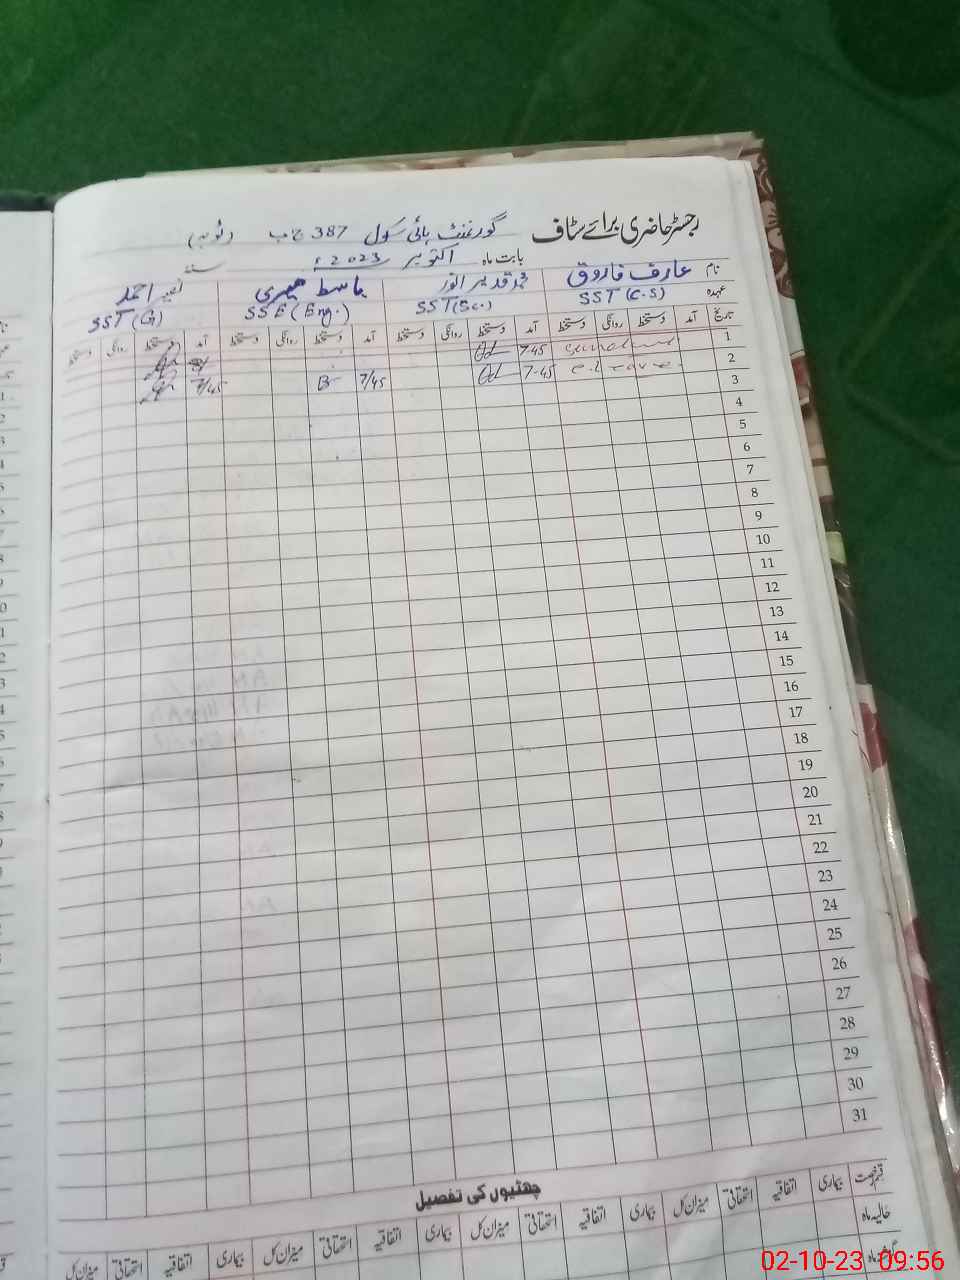 رجسٹر حاضری برائے سٹاف گورنمنٹ ہائی سکول 387 ج ب (ٹوبہ)
بابت ماہ اکتوبر 2023ء سنہ
نام عارف فاروق محمد قدیر انور باسط احمد
عہدہ SST (C.S) SST (Sc.) SSE (Eng.) SST (G)
تاریخ آمد دستخط روانگی دستخط آمد دستخط روانگی دستخط آمد دستخط روانگی دستخط آمد دستخط روانگی دستخط
1 7-45
2 7-45 B 7/45 7/45
3
4
5
6
7
8
9
10
11
12
13
14
15
16
17
18
19
20
21
22
23
24
25
26
27
28
29
30
31
چھٹیوں کی تفصیل
قسم رخصت بیماری اتفاقیہ استحقاقی میزان کل بیماری اتفاقیہ استحقاقی میزان کل بیماری اتفاقیہ استحقاقی میزان کل بیماری اتفاقیہ استحقاقی میزان کل
حالیہ ماہ
02-10-23 09:56